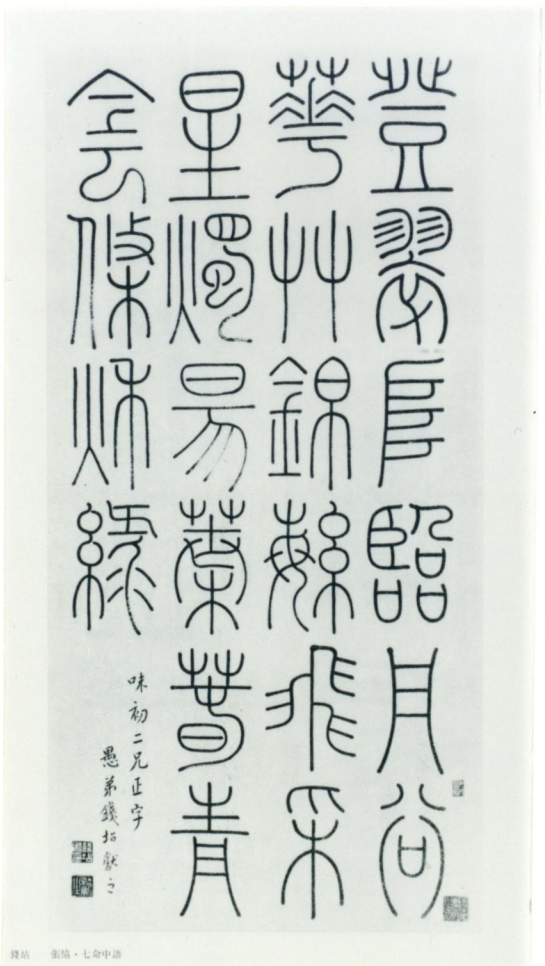 登翠阜臨丹谷
華艸錦緐飛采
星燭昜葉萅青
侌條秋綠
味初二兄正字
愚弟錢坫獻之
錢坫 張協・七命中語